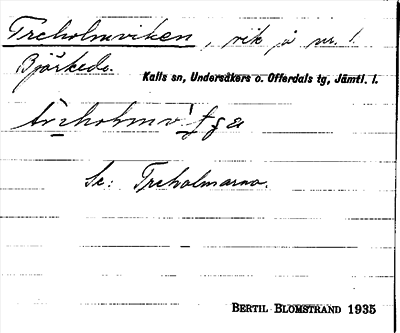 Treholmviken, vik å nr. 1
Björkede. Kalls sn, Undersåkers o. Offerdals tg, Jämtl. l.
Se: Treholmarna.
BERTIL BLOMSTRAND 1935